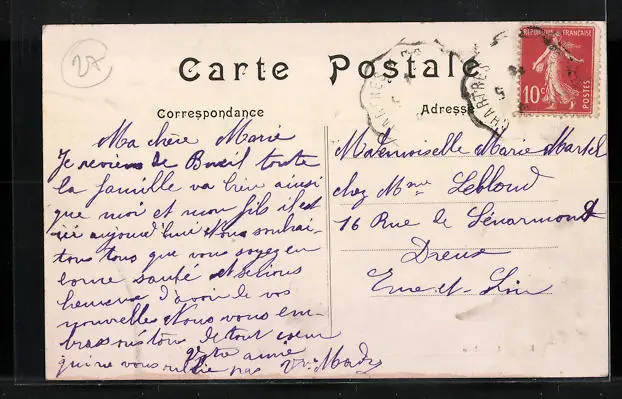 27
Carte Postale
RÉPUBLIQUE FRANÇAISE
10c
POSTES
CHARTRES
Correspondance
Adresse
Ma chère Marie
Je reviens de Breil toute
la famille va bien ainsi
que moi et mon fils il est
ici aujourd'hui Nous souhai-
tons tous que vous soyez en
bonne santé et serions
heureux d'avoir de vos
nouvelles Nous vous em-
brassons tous de tout coeur
votre amie
qui ne vous oublie pas Vve
Mademoiselle Marie Martel
chez Mme Leblond
16 Rue de Sénarmont
Dreux
Eure-et-Loir